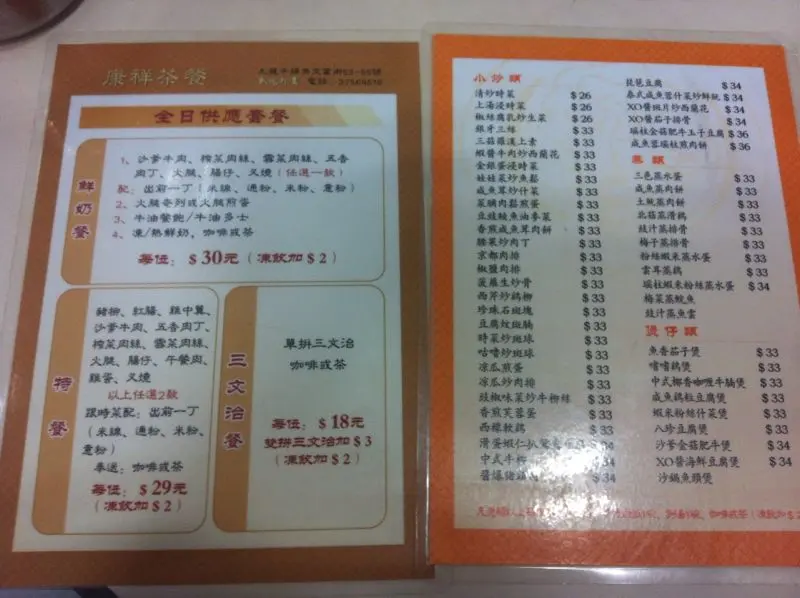 康祥茶餐
電話：27568618
全日供應套餐
鮮奶餐
1、沙爹牛肉、榨菜肉絲、雪菜肉絲、五香
肉丁、火腿、腸仔、叉燒（任選一款）
配：出前一丁（米線、通粉、米粉、意粉）
2、火腿奄列或火腿煎蛋
3、牛油餐飽/牛油多士
4、凍/熱鮮奶、咖啡或茶
每位：$30元（凍飲加$2）
特餐
豬扒、紅腸、雞中翼、
沙爹牛肉、五香肉丁、
榨菜肉絲、雪菜肉絲、
火腿、腸仔、午餐肉、
雞蛋、叉燒
以上任選2款
跟時菜配：出前一丁
（米線、通粉、米粉、
意粉）
奉送：咖啡或茶
每位：$29元
（凍飲加$2）
三文治餐
單拼三文治
咖啡或茶
每位：$18元
雙拼三文治加$3
（凍飲加$2）
小炒類
清炒時菜 $26
上湯浸時菜 $26
椒絲腐乳炒生菜 $26
銀芽三絲 $33
三菇羅漢上素 $33
蝦醬牛肉炒西蘭花 $33
金銀蛋浸時菜 $33
娃娃菜炒魚鬆 $33
咸魚茸炒什菜 $33
菜脯肉鬆煎蛋 $33
豆豉鯪魚油麥菜 $33
香煎咸魚茸肉餅 $33
腰菜炒肉丁 $33
京都肉排 $33
椒鹽肉排 $33
菠蘿生炒骨 $33
西芹炒鷄柳 $33
珍珠石斑塊 $33
豆腐炆斑腩 $33
時菜炒斑球 $33
咕嚕炒斑球 $33
涼瓜煎蛋 $33
涼瓜炒肉排 $33
豉椒味菜炒牛柳絲 $33
香煎芙蓉蛋 $33
西檸軟鷄 $33
滑蛋蝦仁 $34
中式牛柳 $34
$34
琵琶豆腐 $34
泰式咸魚蓉什菜炒鮮魷 $34
XO醬斑片炒西蘭花 $34
XO醬茄子排骨 $34
瑤柱金菇肥牛玉子豆腐 $36
咸魚蓉瑤柱煎肉餅 $36
蒸類
三色蒸水蛋 $33
咸魚蒸肉餅 $33
土魷蒸肉餅 $33
北菇蒸滑鷄 $33
豉汁蒸排骨 $33
梅子蒸排骨 $33
粉絲蝦米蒸水蛋 $33
雲耳蒸鷄 $33
瑤柱蝦米粉絲蒸水蛋 $34
梅菜蒸鯇魚
豉汁蒸魚雲
煲仔類
魚香茄子煲 $33
啫啫鷄煲 $33
中式椰香咖喱牛腩煲 $33
咸魚鷄粒豆腐煲 $33
蝦米粉絲什菜煲 $33
八珍豆腐煲 $33
沙爹金菇肥牛煲 $34
XO醬海鮮豆腐煲 $34
沙鍋魚頭煲
咖啡或茶（凍飲加$2